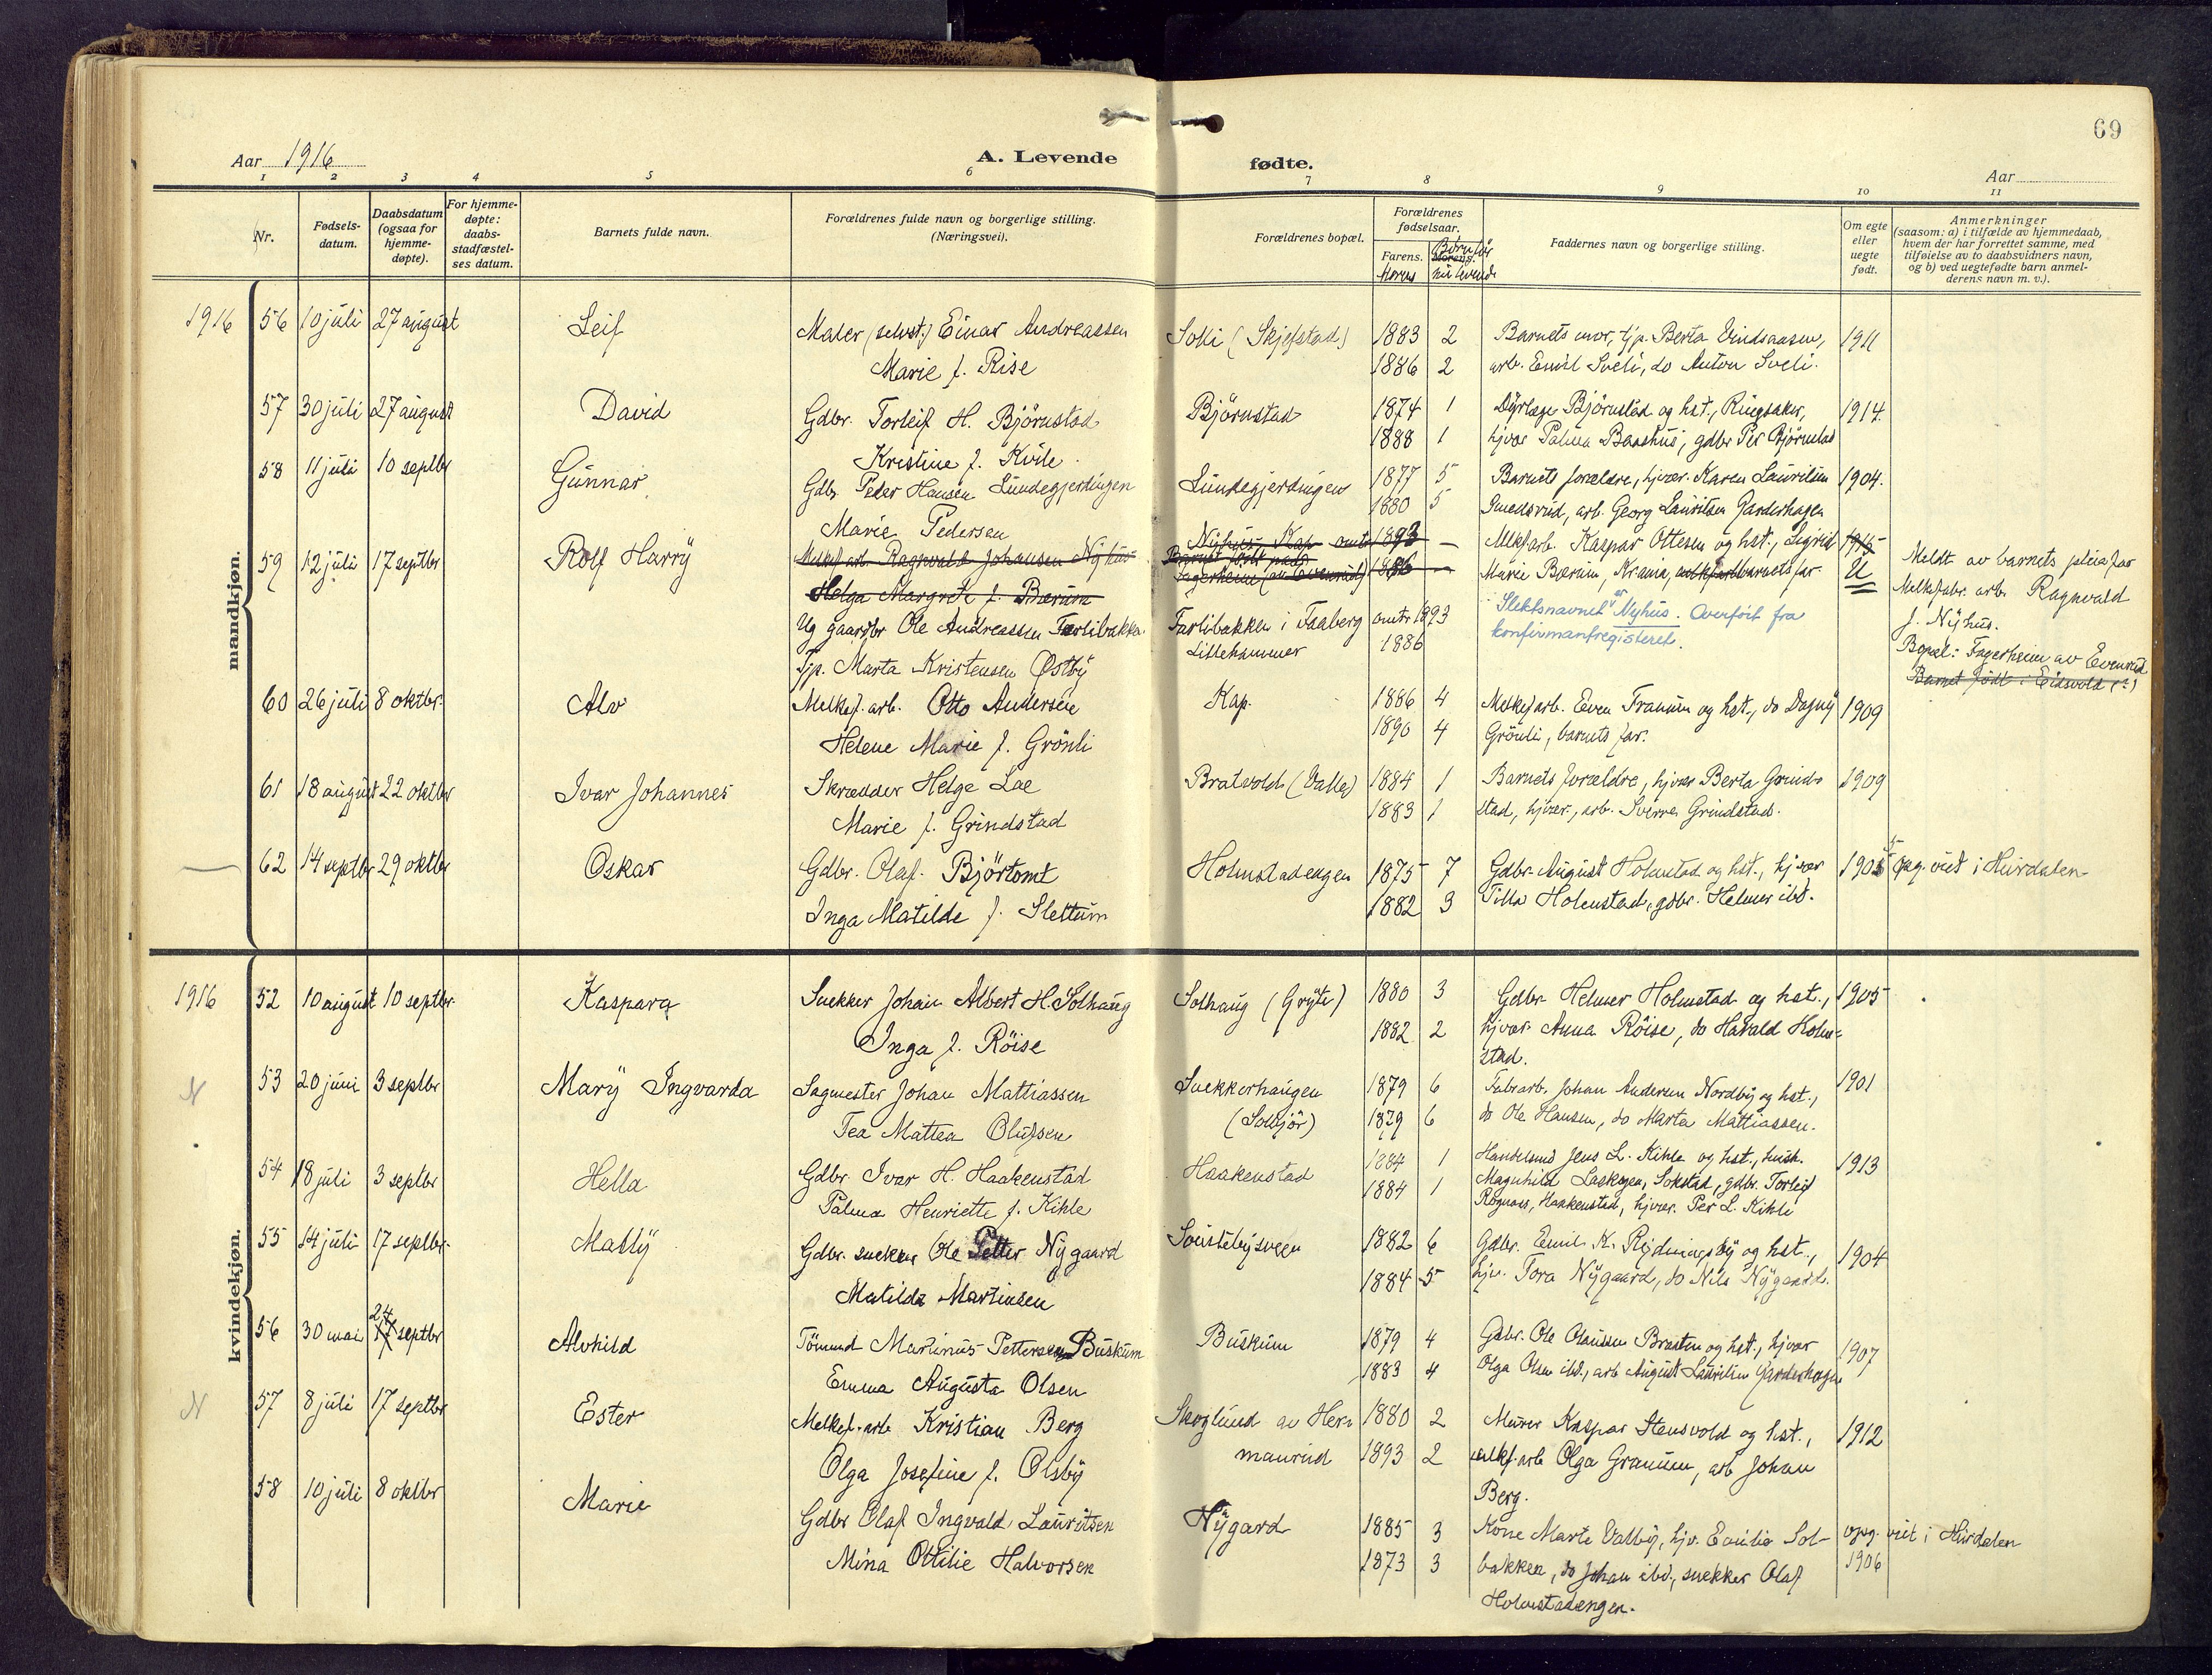 69
Aar 1916
A. Levende fødte.
Aar
1 2 3 4 5 6 7 8 9 10 11
Nr.
Fødsels-
datum.
Daabsdatum
(ogsaa for
hjemme-
døpte).
For hjemme-
døpte:
daabs-
stadfæstel-
ses datum.
Barnets fulde navn.
Forældrenes fulde navn og borgerlige stilling.
(Næringsvei).
Forældrenes bopæl.
Forældrenes
fødselsaar.
Farens. Morens.
Morens nu levende
Faddernes navn og borgerlige stilling.
Om egte
eller
uegte
født.
Anmerkninger
(saasom: a) i tilfælde av hjemmedaab,
hvem der har forrettet samme, med
tilføielse av to daabsvidners navn,
og b) ved uegtefødte barn anmel-
derens navn m. v.).
mandkjøn.
1916 56 10 juli 27 august Leif Maler (selvst.) Einar Andreassen Solli (Skjefstad) 1883 2 Barnets mor, tjp. Berta 1911
Marie f. Rise 1886 2 arb. Emil Sveli, do Anton Sveli.
57 30 juli 27 august David Gdbr. Torleif H. Björnstad Björnstad 1874 1 Dyrlæge Björnstad og hst., Ringsaker, 1914.
Kristine f. Kvile 1888 1 hjvær Palma Banshus, gdbr Per Björnstad
58 11 juli 10 septbr Gunnar Gdbr. Peder Hansen Lundegjerdingen Lundegjerdingen 1877 5 Barnets forældre, hjvær. Karen Lauritsen 1904.
Marie Pedersen 1880 5 Smedsrud, arb. Georg Lauritsen Garderhagen
59 12 juli 17 septbr Rolf Harry Melkef. arb. Ragnvald Johansen Nyhus Nyhus Kap omtr 1893 — Melkf arb. Kaspar Ottesen og hst., Sigrid 1915
Helga Margrete f. Bærum Barnet født paa Fagerheim (av Evenrud) 1886 — Marie Bærum, Krania, barnets far. U
Ug gaardbr Ole Andreassen Farlibakken Farlibakken i Faaberg omtr 1893 Slektsnavnet er "Nyhus". Overført fra
Tjp. Marta Kristensen Østby Lillehammer 1886 konfirmantregisteret.
Meldt av barnets pleiefar
Melkefabr. arb. Ragnvald
J. Nyhus.
Bopæl: Fagerheim av Evenrud
Barnet født i Eidsvold (?)
60 26 juli 8 oktbr. Alv Melkef. arb. Otto Andersen Kap. 1886 4 Melkef arb. Even Tranum og hst., do Dagny 1909
Helene Marie f. Grönli 1890 4 Grönli, barnets far.
61 18 august 22 oktbr Ivar Johannes Skrædder Helge Loe Bratvold (Valle) 1884 1 Barnets forældre, hjvær Berta Grind- 1909
Marie f. Grindstad 1883 1 stad, hjvær, arb. Sverre Grindstad.
62 14 septbr 29 oktbr Oskar Gdbr. Olaf Björtomt Holmstadengen 1875 7 Gdbr. August Holmstad og hst., hjvær 1905 opg. viet i Hurdalen
Inga Matilde f. Slettum 1882 3 Tilla Holmstad, gdbr. Helmer ibd.
kvindekjøn.
1916 52 10 august 10 septbr. Kaspara Snekker Johan Albert H. Solhaug Solhaug (Gryte) 1880 3 Gdbr. Helmer Holmstad og hst., 1905
Inga f. Röise 1882 2 hjvær Anna Röise, do Harald Holm-
stad.
N 53 20 juni 3 septbr Mary Ingvarda Sagmester Johan Mattiassen Snekkerhaugen 1879 6 Fabrarb. Johan Andersen Nordby og hst., 1901
Tea Mattea Olufsen (Solbjör) 1879 6 do Ole Hansen, do Marta Mattiassen.
54 18 juli 3 septbr Hella Gdbr. Ivar H. Haakenstad Haakenstad 1884 1 Handelsmd Jens L. Kihle og hst., 1913
Palma Henriette f. Kihle 1884 1 Magnhild Laskegen, Sokstad, gdbr. Torleif
Rognaas, Haakenstad, hjvær. Per L. Kihle
55 14 juli 17 septbr. Mally Gdbr. snekker Ole Petter Nygaard Sonstebysveen 1882 6 Gdbr. Emil K. Rydningsby og hst., 1904
Matilde Martinsen 1884 5 hjv. Tora Nygaard, do Nils Nygaard.
56 30 mai 24 17 septbr Alvhild Tömmd Martinus Pettersen Buskum Buskum 1879 4 Gdbr. Ole Olaussen Braaten og hst., hjvær 1907
Emma Augusta Olsen 1883 4 Olga Olsen ibd., arb August Lauritsen Garderhagen
N 57 8 juli 17 septbr Ester Melkef. arb Kristian Berg Skoglund av Her- 1880 2 Murer Kaspar Stensvold og hst., 1912
Olga Josefine f. Olsby manrud 1893 2 melkf. arb Olga Granum, arb Johan
Berg.
58 10 juli 8 oktbr Marie Gdbr Olaf Ingvald Lauritsen Nygard 1885 3 Kone Marte Valby, hjv. Emilie Sol- opg. viet i Hurdalen
Mina Ottilie Halvorsen 1873 3 bakken, do Johan ibd., snekker Olaf 1906
Holmstadengen.